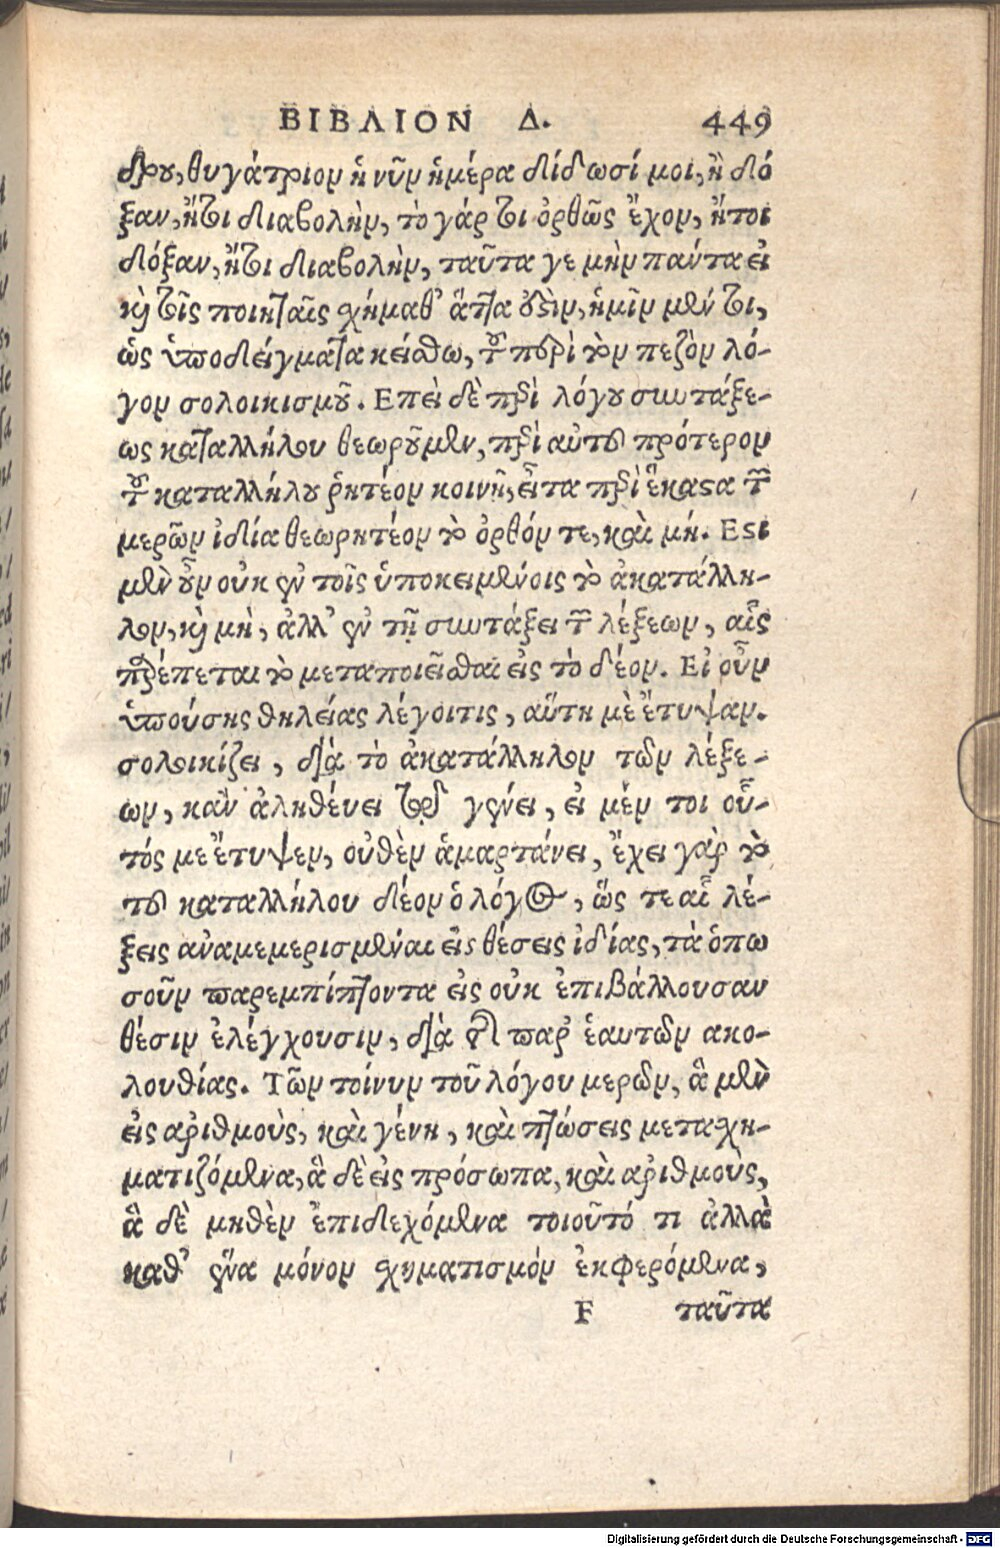 ΒΙΒΛΙΟΝ Δ. 449
δρου, θυγάτριον ἡ νῦν ἡμέρα δίδωσί μοι, ἢ δό
ξαν, ἤτοι διαβολὴν, τὸ γάρ τοι ὀρθῶς ἔχον, ἤτοι
δόξαν, ἤτοι διαβολὴν, ταῦτα γε μὴν πάντα εἰ
καὶ τοῖς ποιηταῖς σχήμαθ' ἅττα οὐσὶν, ἡμῖν μέν τοι,
ὡς ὑποδείγματα κείσθω, τοῦ περὶ τὸν πεζὸν λό-
γον σολοικισμοῦ. Επεὶ δὲ περὶ λόγου συντάξε-
ως καταλλήλου θεωροῦμεν, περὶ αὐτοῦ πρότερον
τοῦ καταλλήλου ῥητέον κοινῆ, εἶτα περὶ ἕκαστα τῶν
μερῶν ἰδία θεωρητέον τὸ ὀρθόν τε, καὶ μή. Εστι
μὲν οὖν οὐκ ἐν τοῖς ὑποκειμένοις τὸ ἀκατάλλη-
λον, καὶ μὴ, ἀλλ' ἐν τῇ συντάξει τῶν λέξεων, αἷς
πρέπεται τὸ μεταποιεῖσθαι εἰς τὸ δέον. Εἰ οὖν
ὑπούσης θηλείας λέγοιτις, αὕτη μὲ ἔτυψαν.
σολοικίζει, διὰ τὸ ἀκατάλληλον τῶν λέξε-
ων, κἂν ἀληθεύει τῷ γένει, εἰ μὲν τοι οὗ-
τός με ἔτυψεν, οὐθὲν ἁμαρτάνει, ἔχει γὰρ τὸ
τοῦ καταλλήλου δέον ὁ λόγος, ὥς τε αἱ λέ-
ξεις ἀναμεμερισμέναι εἰς θέσεις ἰδίας, τὰ ὁπω
σοῦν παρεμπίπτοντα εἰς οὐκ ἐπιβάλλουσαν
θέσιν ἐλέγχουσιν, διὰ τῆς παρ' ἑαυτῶν ακο-
λουθίας. Τῶν τοίνυν τοῦ λόγου μερῶν, ἃ μὲν
εἰς αριθμοὺς, καὶ γένη, καὶ πτώσεις μετασχη-
ματιζόμενα, ἃ δὲ εἰς πρόσωπα, καὶ αριθμοὺς,
ἃ δὲ μηθὲν ἐπιδεχόμενα τοιοῦτό τι ἀλλὰ
καθ' ἕνα μόνον σχηματισμόν ἐκφερόμενα,
F ταῦτα
Digitalisierung gefördert durch die Deutsche Forschungsgemeinschaft - DFG